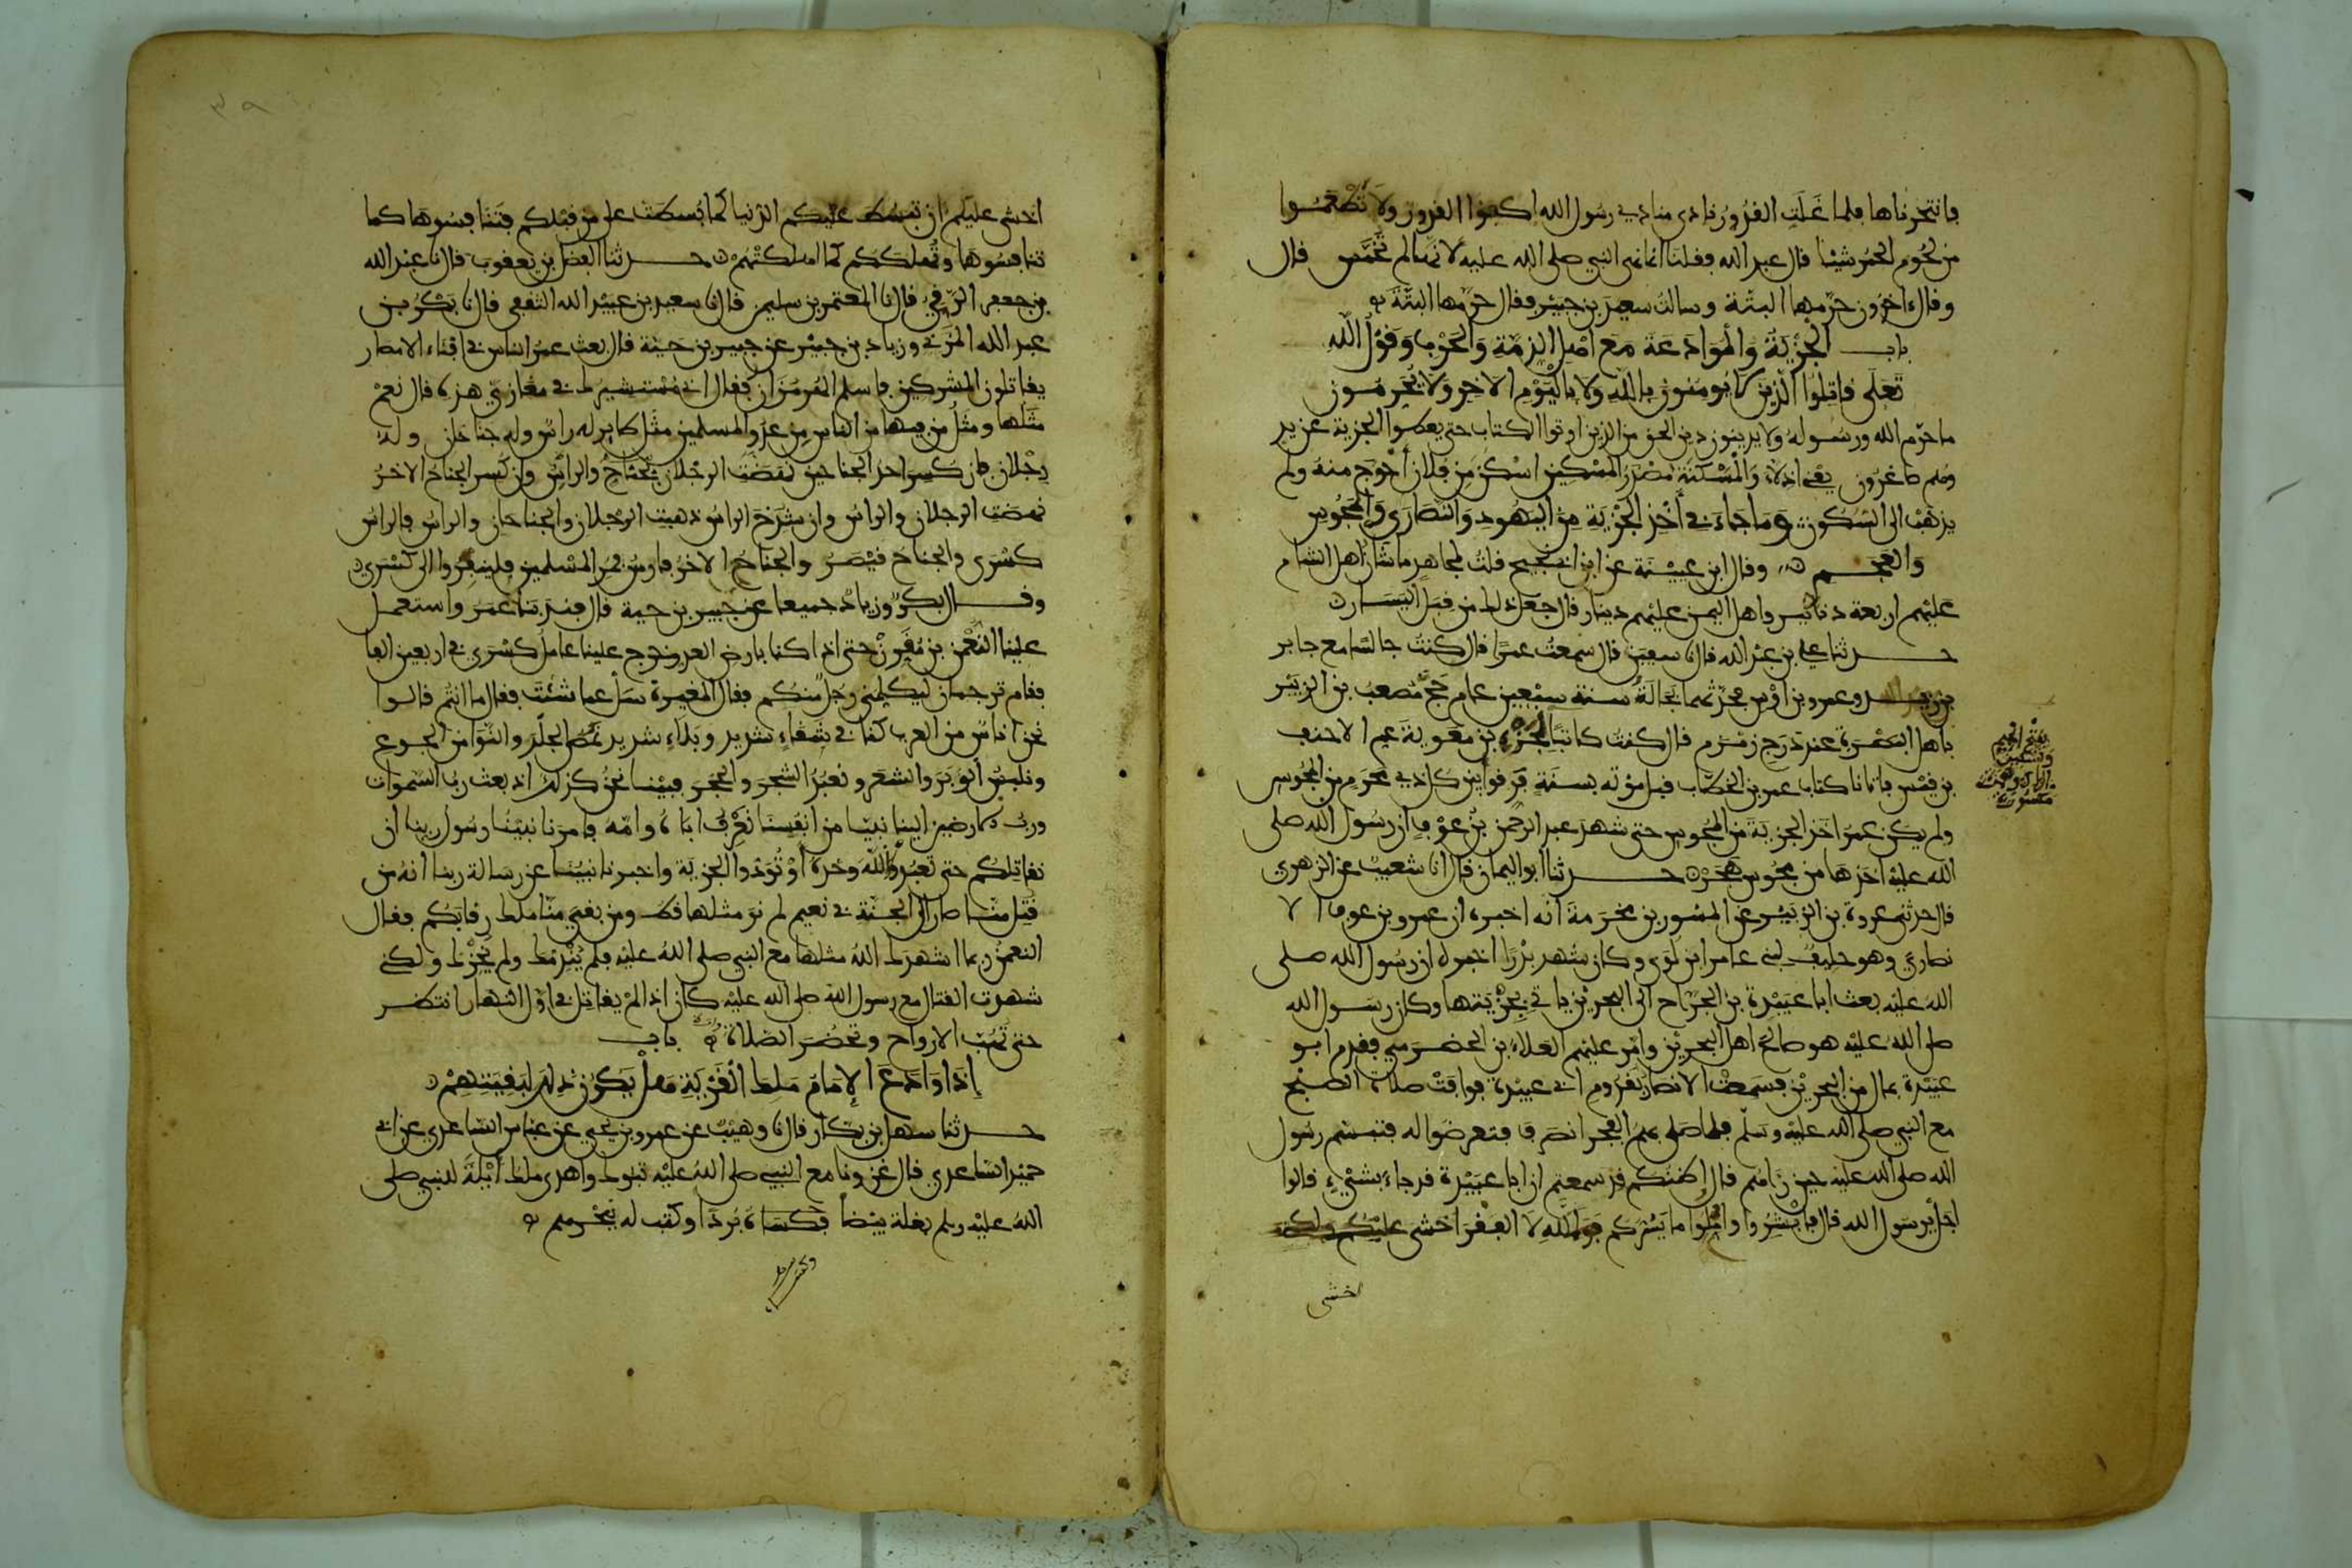 فانتحرناها فلما غلت القدور نادى منادي رسول الله اكفوا القدور ولا تطعموا
من لحوم الحمر شيئا قال عبد الله فقلنا انما نهى النبي صلى الله عليه لانها لم تخمس قال
وقال اخرون حرمها البتة وسالت سعيد بن جبير فقال حرمها البتة
باب الجزية والموادعة مع اهل الذمة والحرب وقول الله
تعلى قاتلوا الذين لا يومنون بالله ولا باليوم الاخر ولا يحرمون
ما حرم الله ورسوله ولا يدينون دين الحق من الذين اوتوا الكتاب حتى يعطوا الجزية عن يد
وهم صاغرون يعني اذلاء والمسكنة مصدر المسكين اسكن من فلان أحوج منه ولم
يذهب الى السكون وما جاء في أخذ الجزية من اليهود والنصارى والمجوس
والعجم وقال ابن عيينة عن ابن ابي نجيح قلت لمجاهد ما شان اهل الشام
عليهم اربعة دنانير واهل اليمن عليهم دينار قال جعل ذلك من قبل اليسار
حدثنا علي بن عبد الله قال نا سفين قال سمعت عمرا قال كنت جالسا مع جابر
بن زيد وعمرو بن اوس فحدثهما بجالة سنة سبعين عام حج مصعب بن الزبير
باهل البصرة عند درج زمزم قال كنت كاتبا لجزء بن معوية عم الاحنف
بن قيس فاتانا كتاب عمر بن الخطاب قبل موته بسنة فرقوا بين كل ذي محرم من المجوس
ولم يكن عمر اخذ الجزية من المجوس حتى شهد عبد الرحمن بن عوف ان رسول الله صلى
الله عليه اخذها من مجوس هجر حدثنا ابو اليمان قال انا شعيب عن الزهري
قال حدثني عروة بن الزبير عن المسور بن مخرمة انه اخبره ان عمرو بن عوف الا
نصاري وهو حليف لبني عامر ابن لؤي وكان شهد بدرا اخبره ان رسول الله صلى
الله عليه بعث ابا عبيدة بن الجراح الى البحرين ياتي بجزيتها وكان رسول الله
صلى الله عليه هو صالح اهل البحرين وامر عليهم العلاء بن الحضرمي فقدم ابو
عبيدة بمال من البحرين فسمعت الانصار بقدوم ابي عبيدة فوافت صلاة الصبح
مع النبي صلى الله عليه وسلم فلما صلى بهم الفجر انصرف فتعرضوا له فتبسم رسول
الله صلى الله عليه حين راهم قال اظنكم قد سمعتم ان ابا عبيدة قد جاء بشيء قالوا
اجل يرسول الله قال فابشروا واملوا ما يسركم فوالله لا الفقر اخشى عليكم ولكن
اخشى
بفتح الجيم
اخشى عليكم ان تبسط عليكم الدنيا كما بسطت على من قبلكم فتنافسوها كما
تنافسوها وتهلككم كما اهلكتهم حدثنا الفضل بن يعقوب قال نا عبد الله
بن جعفر الرقي قال نا المعتمر بن سليمن قال نا سعيد بن عبيد الله الثقفي قال نا بكر بن
عبد الله المزني وزياد بن جبير عن جبير بن حية قال بعث عمر الناس في افناء الامصار
يقاتلون المشركين فاسلم الهرمزان فقال اني مستشيرك في مغازي هذه قال نعم
مثلها ومثل من فيها من الناس من عدو المسلمين مثل طاير له راس وله جناحان وله
رجلان فان كسر احد الجناحين نهضت الرجلان بجناح والراس وان كسر الجناح الاخر
نهضت الرجلان والراس وان شدخ الراس ذهبت الرجلان والجناحان والراس فالراس
كسرى والجناح قيصر والجناح الاخر فارس فمر المسلمين فلينفروا الى كسرى
وقال بكر وزياد جميعا عن جبير بن حية قال فندبنا عمر واستعمل
علينا النعمن بن مقرن حتى اذا كنا بارض العدو خرج علينا عامل كسرى في اربعين الفا
فقام ترجمان ليكلمني رجل منكم فقال المغيرة سل عما شئت فقال ما انتم قالوا
نحن اناس من العرب كنا في شقاء شديد وبلاء شديد نمص الجلد والنوا من الجوع
ونلبس الوبر والشعر ونعبد الشجر والحجر فبينا نحن كذلك اذ بعث رب السموات
ورب الارضين الينا نبيا من انفسنا نعرف اباه وامه فامرنا نبينا رسول ربنا ان
نقاتلكم حتى تعبدوا الله وحده أو تؤدوا الجزية واخبرنا نبينا عن رسالة ربنا انه من
قتل منا صار الى الجنة في نعيم لم نر مثلها قط ومن بقي منا ملك رقابكم فقال
النعمن ربما اشهدك الله مثلها مع النبي صلى الله عليه فلم يندمك ولم يخزك ولكني
شهدت القتال مع رسول الله صلى الله عليه كان اذا لم يقاتل في اول النهار انتظر
حتى تهب الارواح وتحضر الصلاة باب
إذا وادع الإمام ملك القرية هل يكون ذلك لبقيتهم
حدثنا سهل بن بكار قال نا وهيب عن عمرو بن يحيى عن عباس الساعدي عن ابي
حميد الساعدي قال غزونا مع النبي صلى الله عليه تبوك واهدى ملك أيلة للنبي صلى
الله عليه وسلم بغلة بيضا فكساه بردا وكتب له ببحرهم